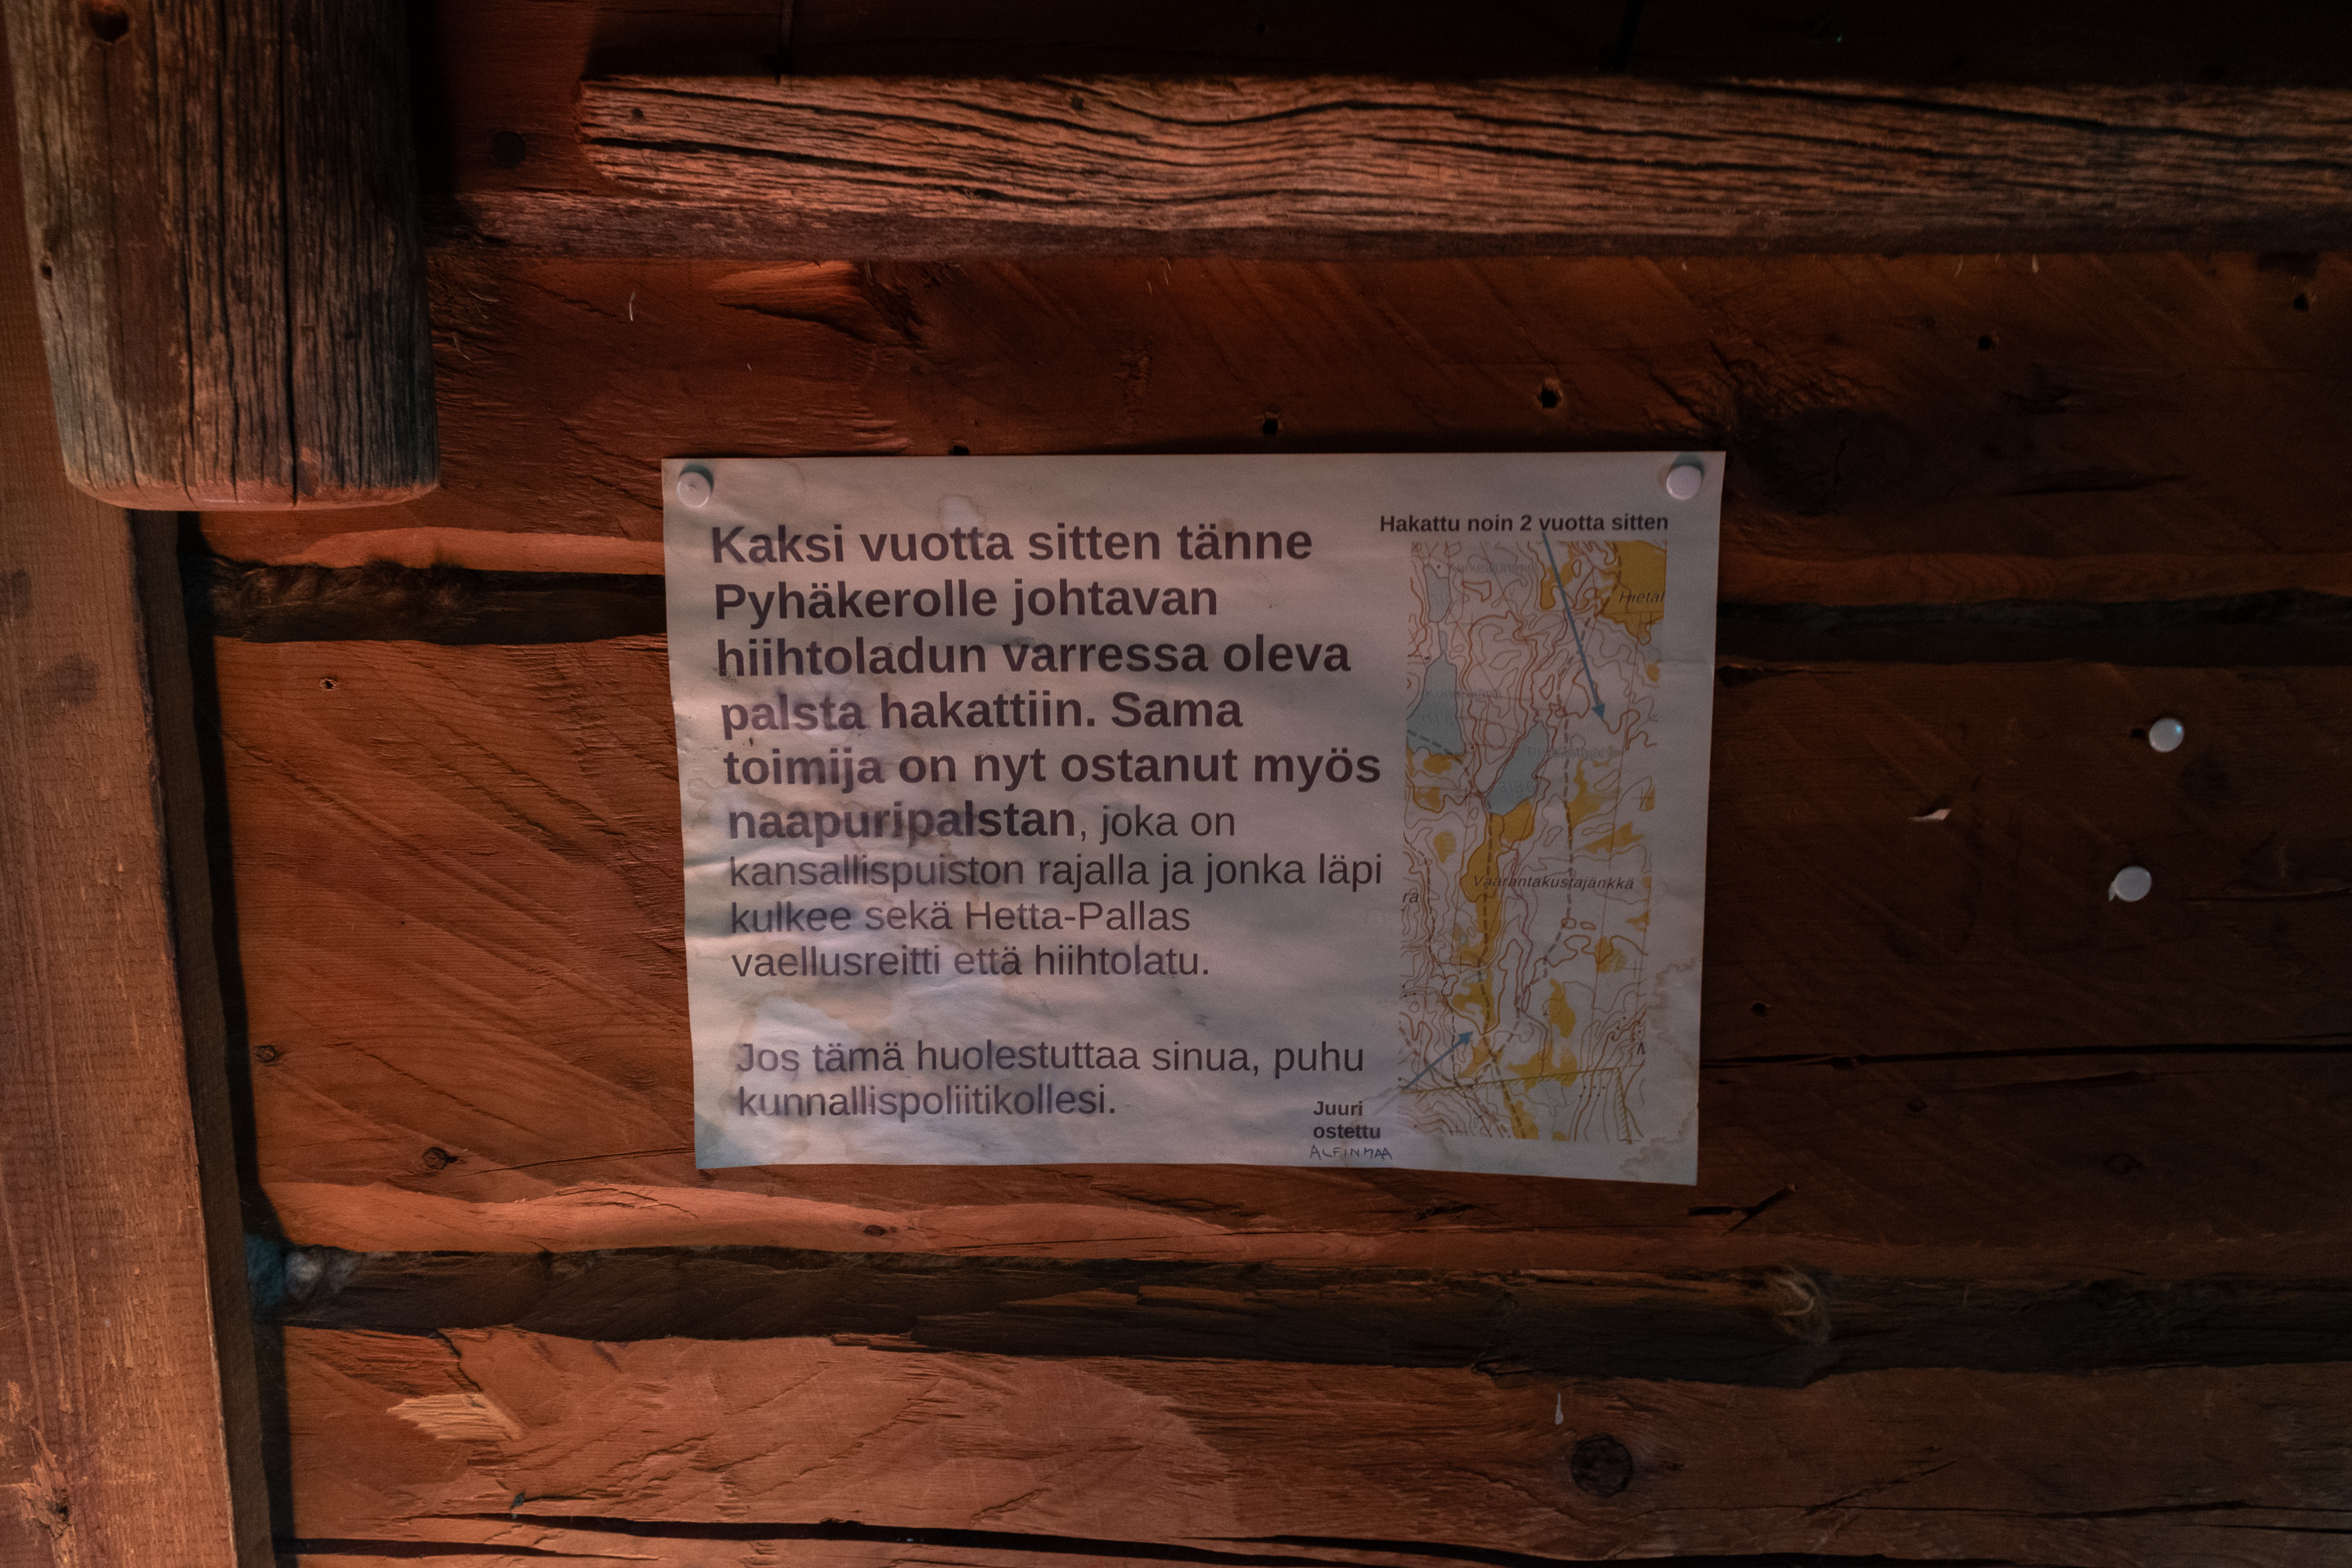 Kaksi vuotta sitten tänne
Pyhäkerolle johtavan
hiihtoladun varressa oleva
palsta hakattiin. Sama
toimija on nyt ostanut myös
naapuripalstan, joka on
kansallispuiston rajalla ja jonka läpi
kulkee sekä Hetta-Pallas
vaellusreitti että hiihtolatu.
Jos tämä huolestuttaa sinua, puhu
kunnallispoliitikollesi.
Hakattu noin 2 vuotta sitten
Hietal
Vaarantakustajänkkä
ra
Juuri
ostettu
ALFINMAA